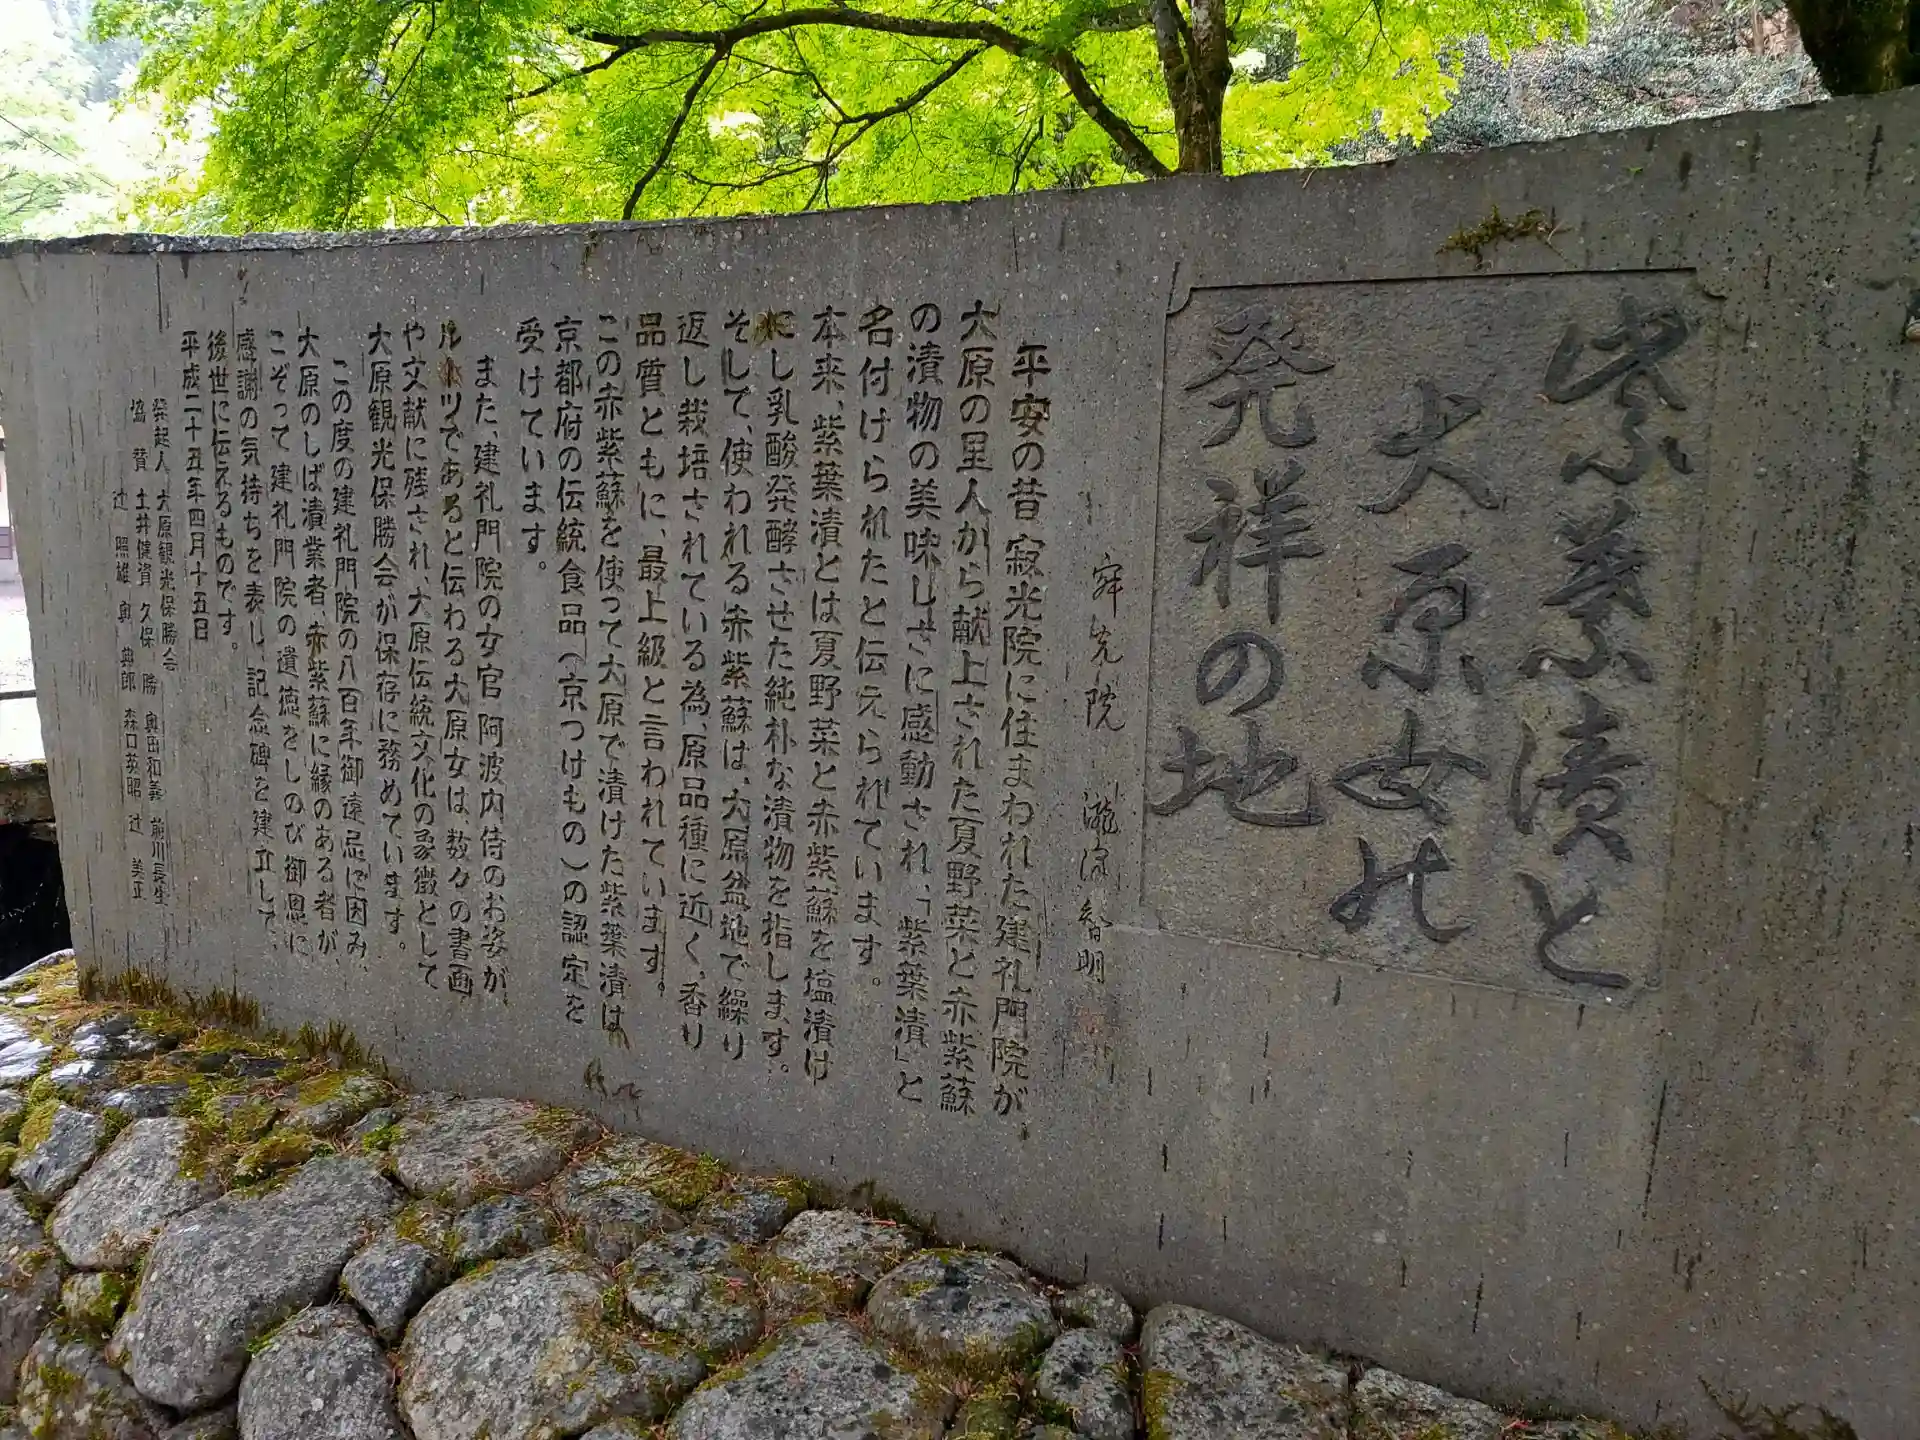 紫葉漬と
大原女の
発祥の地
寂光院 瀧澤智明
平安の昔、寂光院に住まわれた建礼門院が、
大原の里人から献上された夏野菜と赤紫蘇
の漬物の美味しさに感動され、「紫葉漬」と
名付けられたと伝えられています。
本来、紫葉漬とは夏野菜と赤紫蘇を塩漬け
にし乳酸発酵させた純朴な漬物を指します。
そして、使われる赤紫蘇は、大原盆地で繰り
返し栽培されている為、原品種に近く、香り
品質ともに、最上級と言われています。
この赤紫蘇を使って大原で漬けた紫葉漬は
京都府の伝統食品(京つけもの)の認定を
受けています。
また、建礼門院の女官阿波内侍のお姿が、
ルーツであると伝わる大原女は、数々の書画
や文献に残され、大原伝統文化の象徴として
大原観光保勝会が保存に務めています。
この度の建礼門院の八百年御遠忌に因み、
大原のしば漬業者、赤紫蘇に縁のある者が、
こぞって建礼門院の遺徳をしのび御恩に
感謝の気持ちを表し、記念碑を建立して、
後世に伝えるものです。
平成二十五年四月十五日
発起人 大原観光保勝会
協賛 土井健資 久保勝 奥田和義 前川長生
辻照雄 奥典郎 森口英昭 辻美正